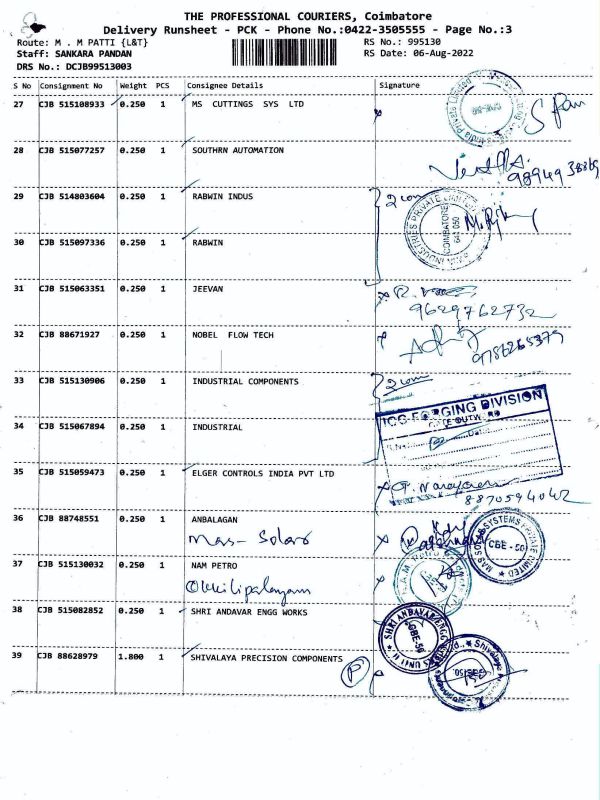 THE PROFESSIONAL COURIERS, Coimbatore
Delivery Runsheet - PCK - Phone No.:0422-3505555 - Page No.:3
Route: M . M PATTI {L&T} RS No.: 995130
Staff: SANKARA PANDAN RS Date: 06-Aug-2022
DRS No.: DCJB99513003
S No Consignment No Weight PCS Consignee Details Signature
27 CJB 515108933 0.250 1 MS CUTTINGS SYS LTD
28 CJB 515077257 0.250 1 SOUTHRN AUTOMATION
29 CJB 514803604 0.250 1 RABWIN INDUS 2 com
30 CJB 515097336 0.250 1 RABWIN
COIMBATORE 641 050
31 CJB 515063351 0.250 1 JEEVAN
9629762732
32 CJB 88671927 0.250 1 NOBEL FLOW TECH
9786265379
33 CJB 515130906 0.250 1 INDUSTRIAL COMPONENTS 2 com
ICG-FORGING DIVISION
34 CJB 515067894 0.250 1 INDUSTRIAL
35 CJB 515059473 0.250 1 ELGER CONTROLS INDIA PVT LTD
8870594042
36 CJB 88748551 0.250 1 ANBALAGAN
Mas- Solar
CBE - 50
37 CJB 515130032 0.250 1 NAM PETRO
38 CJB 515082852 0.250 1 SHRI ANDAVAR ENGG WORKS
39 CJB 88628979 1.800 1 SHIVALAYA PRECISION COMPONENTS
P